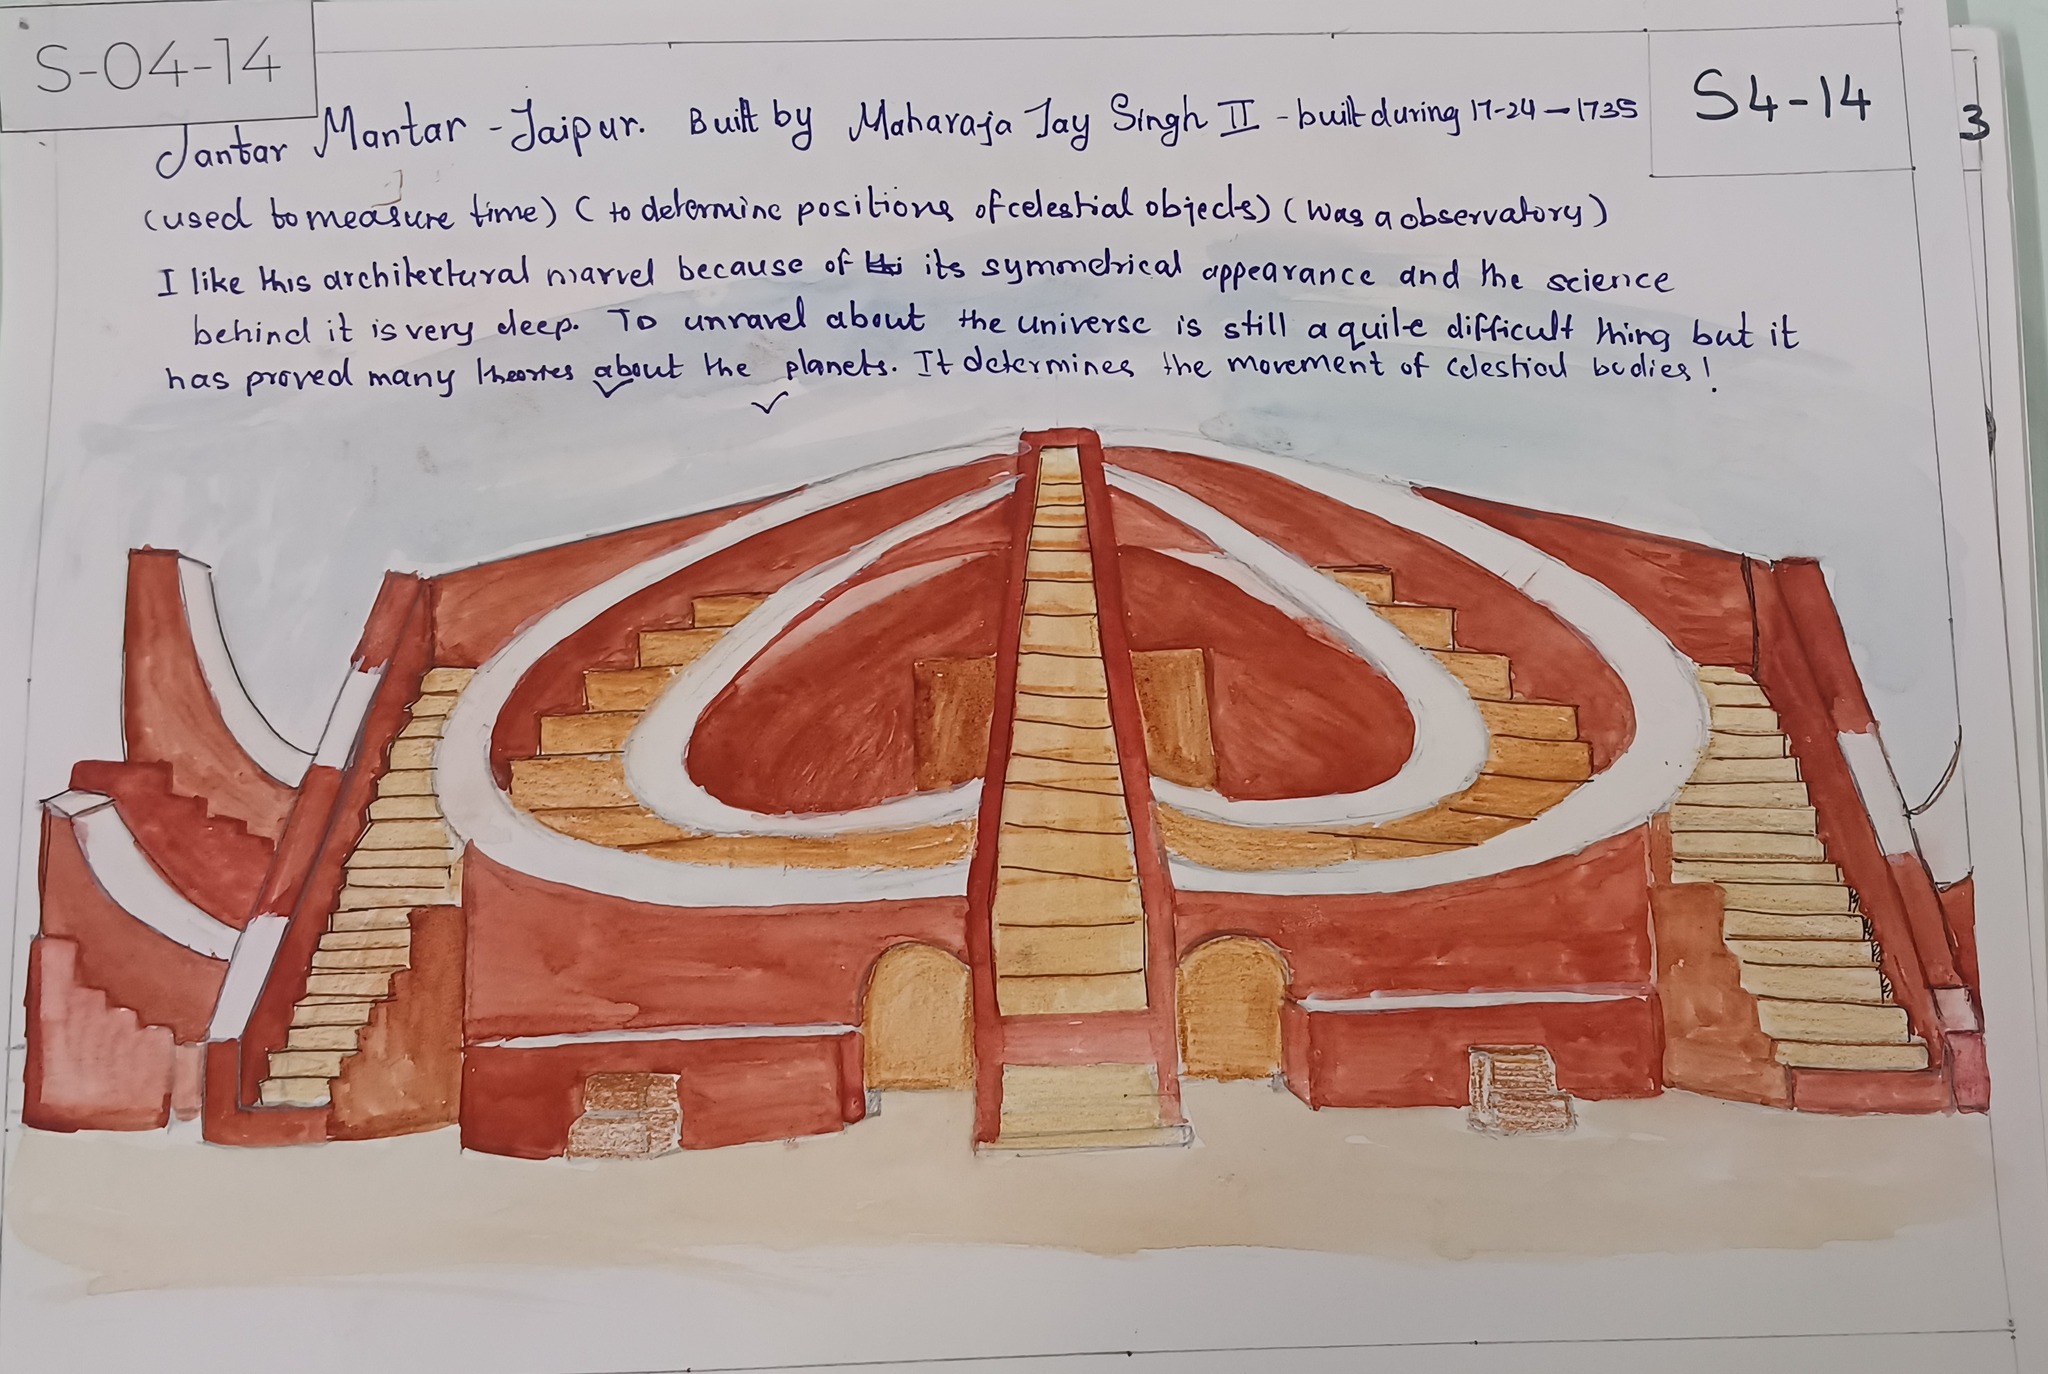 S-04-14
S4-14
3
Jantar Mantar - Jaipur. Built by Maharaja Jay Singh II - built during 17-24 - 1735
(used to measure time) ( to determine positions of celestial objects) (was a observatory)
I like this architectural marvel because of its symmetrical appearance and the science
behind it is very deep. To unravel about the universe is still a quite difficult thing but it
has proved many theories about the planets. It determines the movement of celestial bodies!